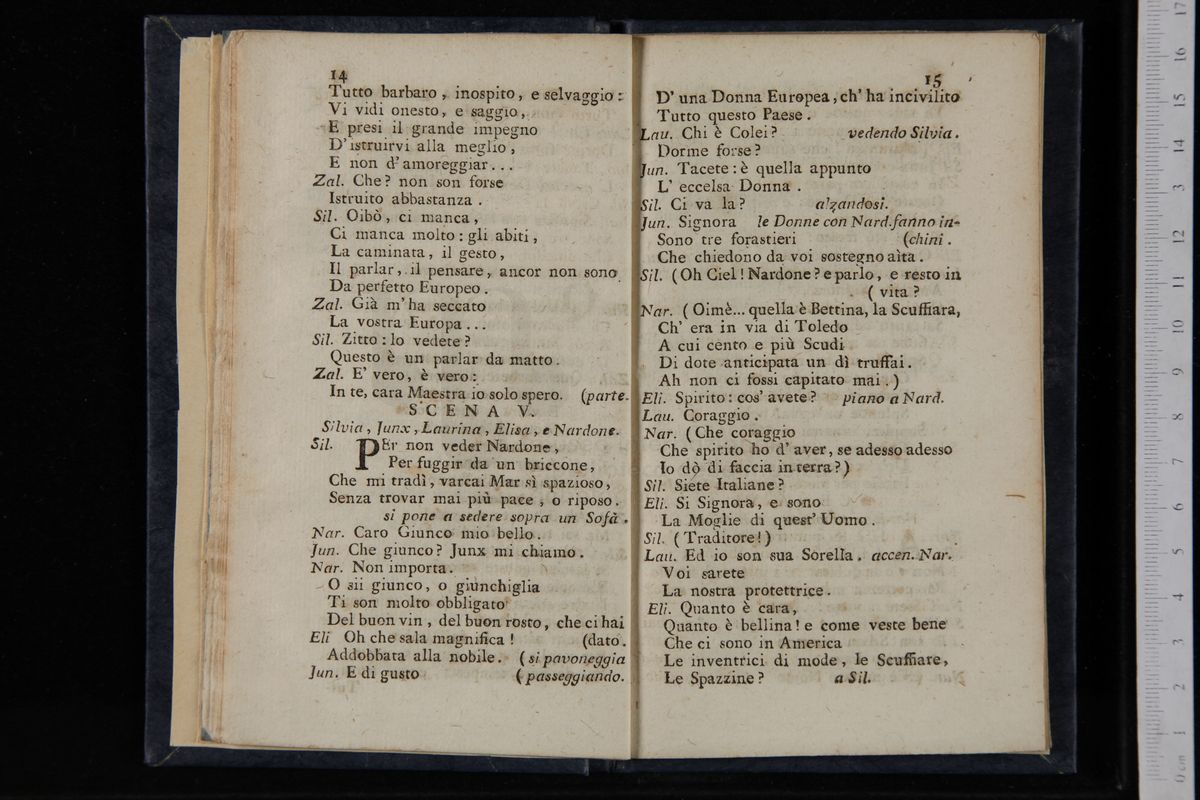 14
Tutto barbaro, inospito, e selvaggio:
Vi vidi onesto, e saggio,
E presi il grande impegno
D'istruirvi alla meglio,
E non d'amoreggiar...
Zal. Che? non son forse
Istruito abbastanza.
Sil. Oibò, ci manca,
Ci manca molto: gli abiti,
La caminata, il gesto,
Il parlar, il pensare, ancor non sono
Da perfetto Europeo.
Zal. Già m'ha seccato
La vostra Europa...
Sil. Zitto: lo vedete?
Questo è un parlar da matto.
Zal. E' vero, è vero:
In te, cara Maestra io solo spero. (parte.
SCENA V.
Silvia, Junx, Laurina, Elisa, e Nardone.
Sil. PEr non veder Nardone,
Per fuggir da un briccone,
Che mi tradì, varcai Mar sì spazioso,
Senza trovar mai più pace, o riposo.
si pone a sedere sopra un Sofà.
Nar. Caro Giunco mio bello.
Jun. Che giunco? Junx mi chiamo.
Nar. Non importa.
O sii giunco, o giunchiglia
Ti son molto obbligato
Del buon vin, del buon rosto, che ci hai
Eli Oh che sala magnifica! (dato.
Addobbata alla nobile. (si pavoneggia
Jun. E di gusto (passeggiando.
15
D'una Donna Europea, ch'ha incivilito
Tutto questo Paese.
Lau. Chi è Colei? vedendo Silvia.
Dorme forse?
Jun. Tacete: è quella appunto
L'eccelsa Donna.
Sil. Ci va la? alzandosi.
Jun. Signora le Donne con Nard. fanno in-
Sono tre forastieri (chini.
Che chiedono da voi sostegno aìta.
Sil. (Oh Ciel! Nardone? e parlo, e resto in
(vita?
Nar. (Oimè... quella è Bettina, la Scuffiara,
Ch' era in via di Toledo
A cui cento e più Scudi
Di dote anticipata un dì truffai.
Ah non ci fossi capitato mai.)
Eli. Spirito: cos' avete? piano a Nard.
Lau. Coraggio.
Nar. (Che coraggio
Che spirito ho d'aver, se adesso adesso
Io dò di faccia in terra?)
Sil. Siete Italiane?
Eli. Si Signora, e sono
La Moglie di quest' Uomo.
Sil. (Traditore!)
Lau. Ed io son sua Sorella. accen. Nar.
Voi sarete
La nostra protettrice.
Eli. Quanto è cara,
Quanto è bellina! e come veste bene
Che ci sono in America
Le inventrici di mode, le Scuffiare,
Le Spazzine? a Sil.
0 cm 1 2 3 4 5 6 7 8 9 10 11 12 13 14 15 16 17